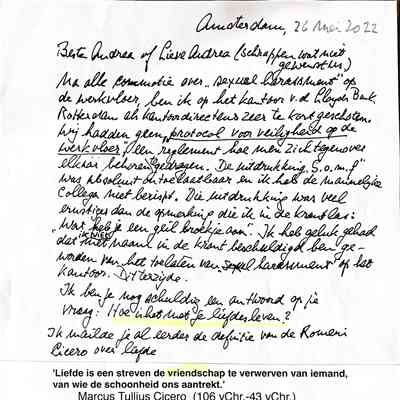 Amsterdam, 26 Mei 2022
Beste Andrea of Lieve Andrea (schrappen wat niet
gewenst is)
Na alle commotie over "sexual harassment" op
de werkvloer, ben ik op het kantoor v.d. Lloyds Bank
Rotterdam als kantoordirecteur zeer te kort geschoten.
Wij hadden geen protocol voor veiligheid op de
werkvloer / een reglement hoe men zich tegenover
elkaar behoren gedragen. De uitdrukking "S.o.m.f"
was absoluut ontoelaatbaar en ik heb de mannelijke
collega niet berispt. Die uitdrukking was veel
ernstiger dan de opmerking die ik in de krant las:
"Wat heb je een geil broekje aan". Ik heb geluk gehad
dat ik niet in de krant beschuldigd ben ge-
worden van het toelaten van "sexual harassment" op het
kantoor. Dit terzijde.
Ik ben je nog schuldig een antwoord op je
vraag: Hoe is het met je liefdesleven?
Ik mailde je al eerder de definitie van de Romein
Cicero over liefde
'Liefde is een streven de vriendschap te verwerven van iemand,
van wie de schoonheid ons aantrekt.'
Marcus Tullius Cicero (106 vChr.-43 vChr.)